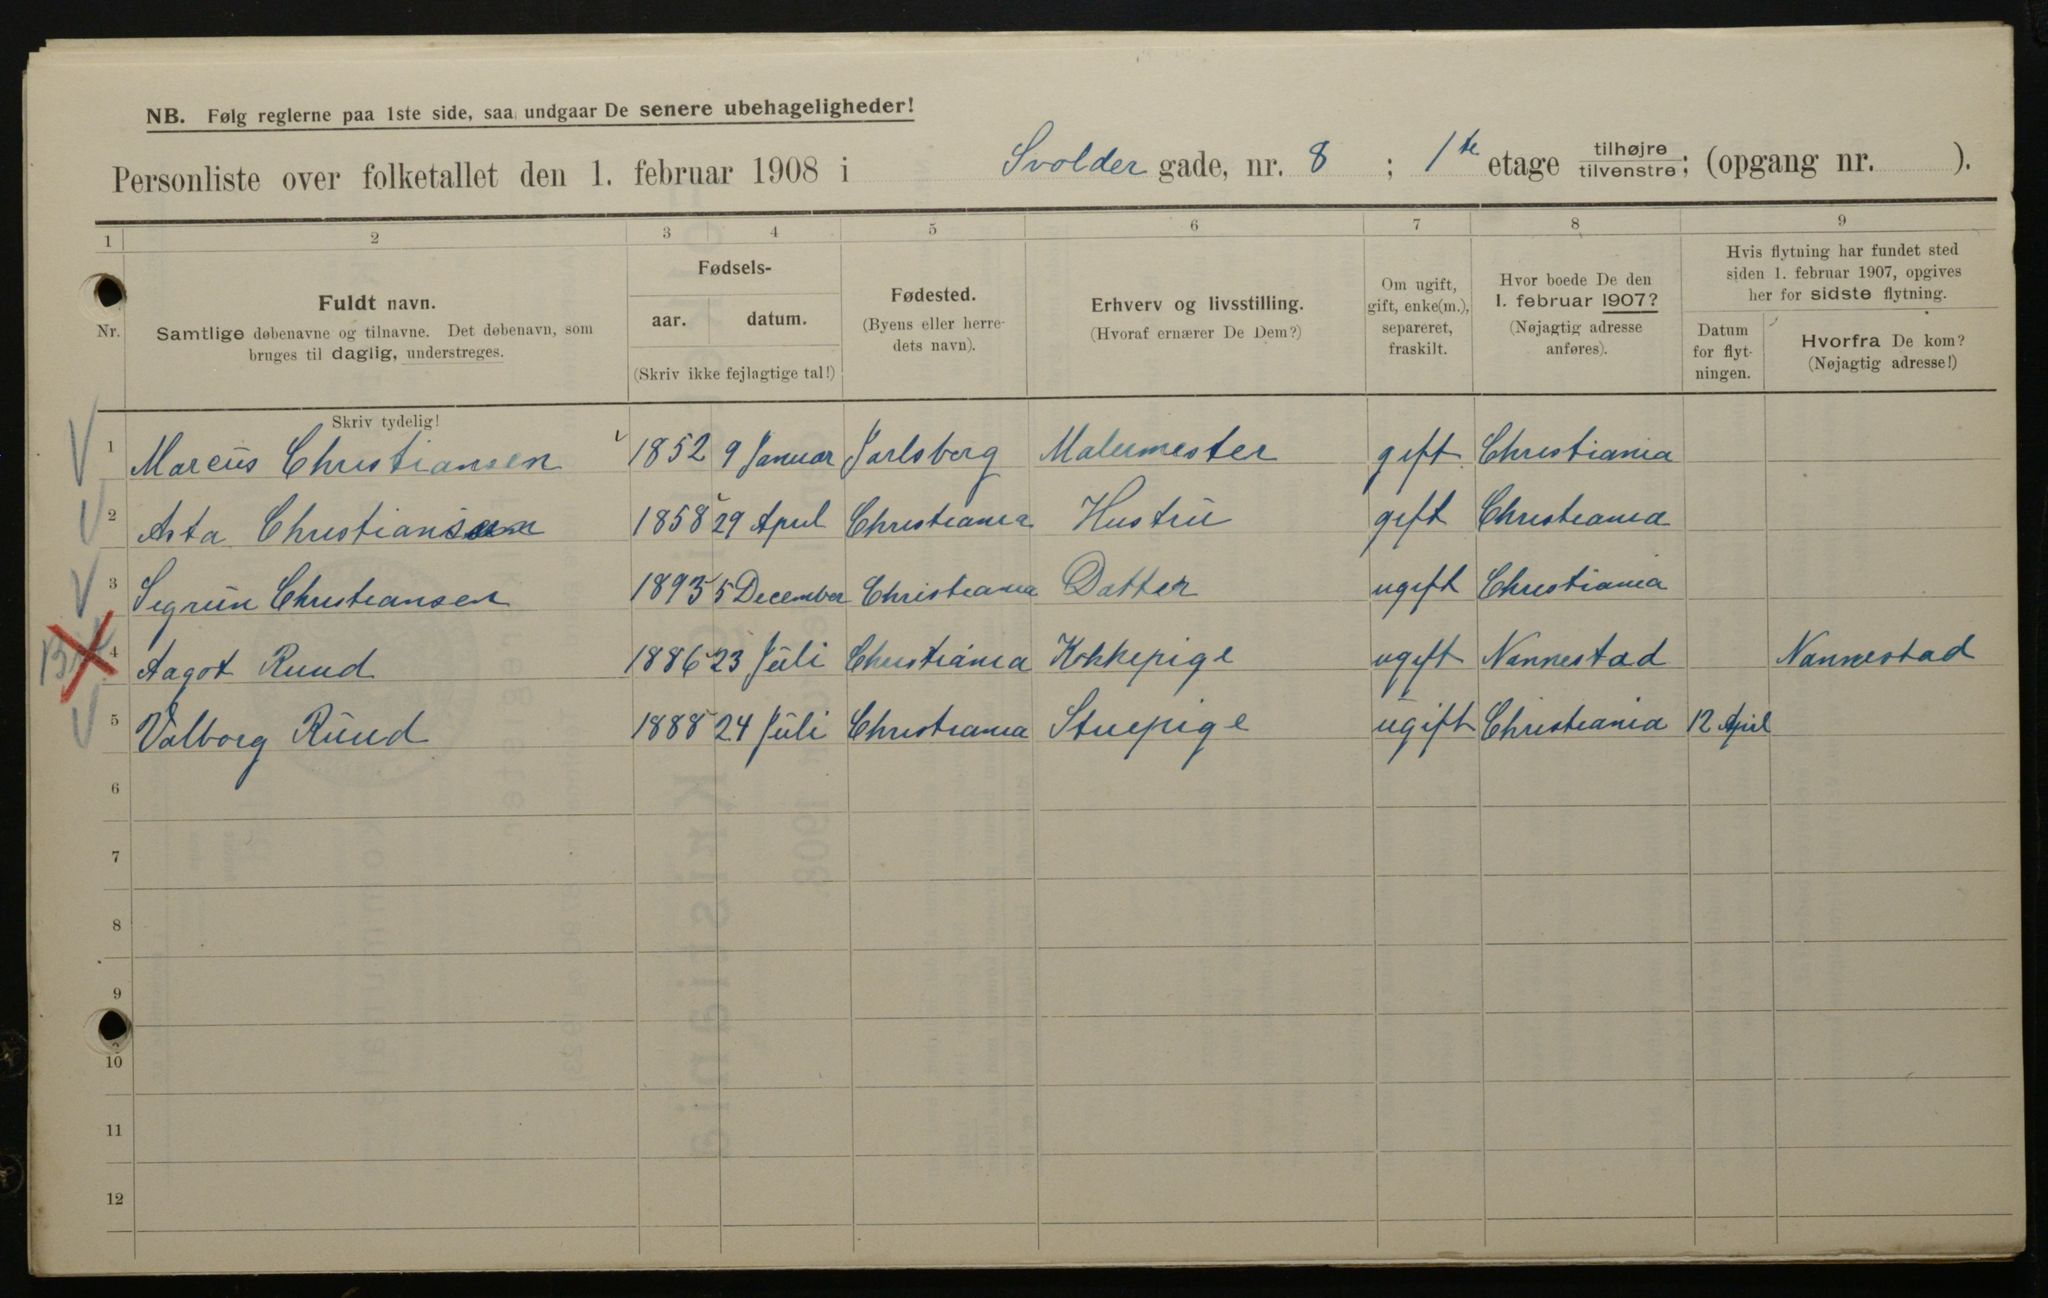 NB. Følg reglerne paa 1ste side, saa undgaar De senere ubehageligheder!
Personliste over folketallet den 1. februar 1908 i Svolder gade, nr. 8 ; 1ste etage tilhøjre/tilvenstre; (opgang nr. ).
1 2 3 4 5 6 7 8 9
Nr.
Fuldt navn.
Samtlige døbenavne og tilnavne. Det døbenavn, som
bruges til daglig, understreges.
Skriv tydelig!
Fødsels-
aar. datum.
(Skriv ikke fejlagtige tal!)
Fødested.
(Byens eller herre-
dets navn).
Erhverv og livsstilling.
(Hvoraf ernærer De Dem?)
Om ugift,
gift, enke(m.),
separeret,
fraskilt.
Hvor boede De den
1. februar 1907?
(Nøjagtig adresse
anføres).
Hvis flytning har fundet sted
siden 1. februar 1907, opgives
her for sidste flytning.
Datum
for flyt-
ningen.
Hvorfra De kom?
(Nøjagtig adresse!)
1 Marcus Christiansen 1852 9 Januar Jarlsberg Malermester gift Christiania
2 Asta Christiansen 1858 29 April Christiania Hustru gift Christiania
3 Sigrun Christiansen 1893 5 December Christiania Datter ugift Christiania
4 Aagot Ruud 1886 23 Juli Christiania Kokkepige ugift Nannestad Nannestad
5 Valborg Ruud 1888 24 Juli Christiania Stuepige ugift Christiania 12 April
6
7
8
9
10
11
12